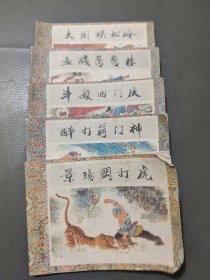 大闹蜈蚣岭
血溅鸳鸯楼
斗殺西门庆
醉打蒋门神
景陽岡打虎